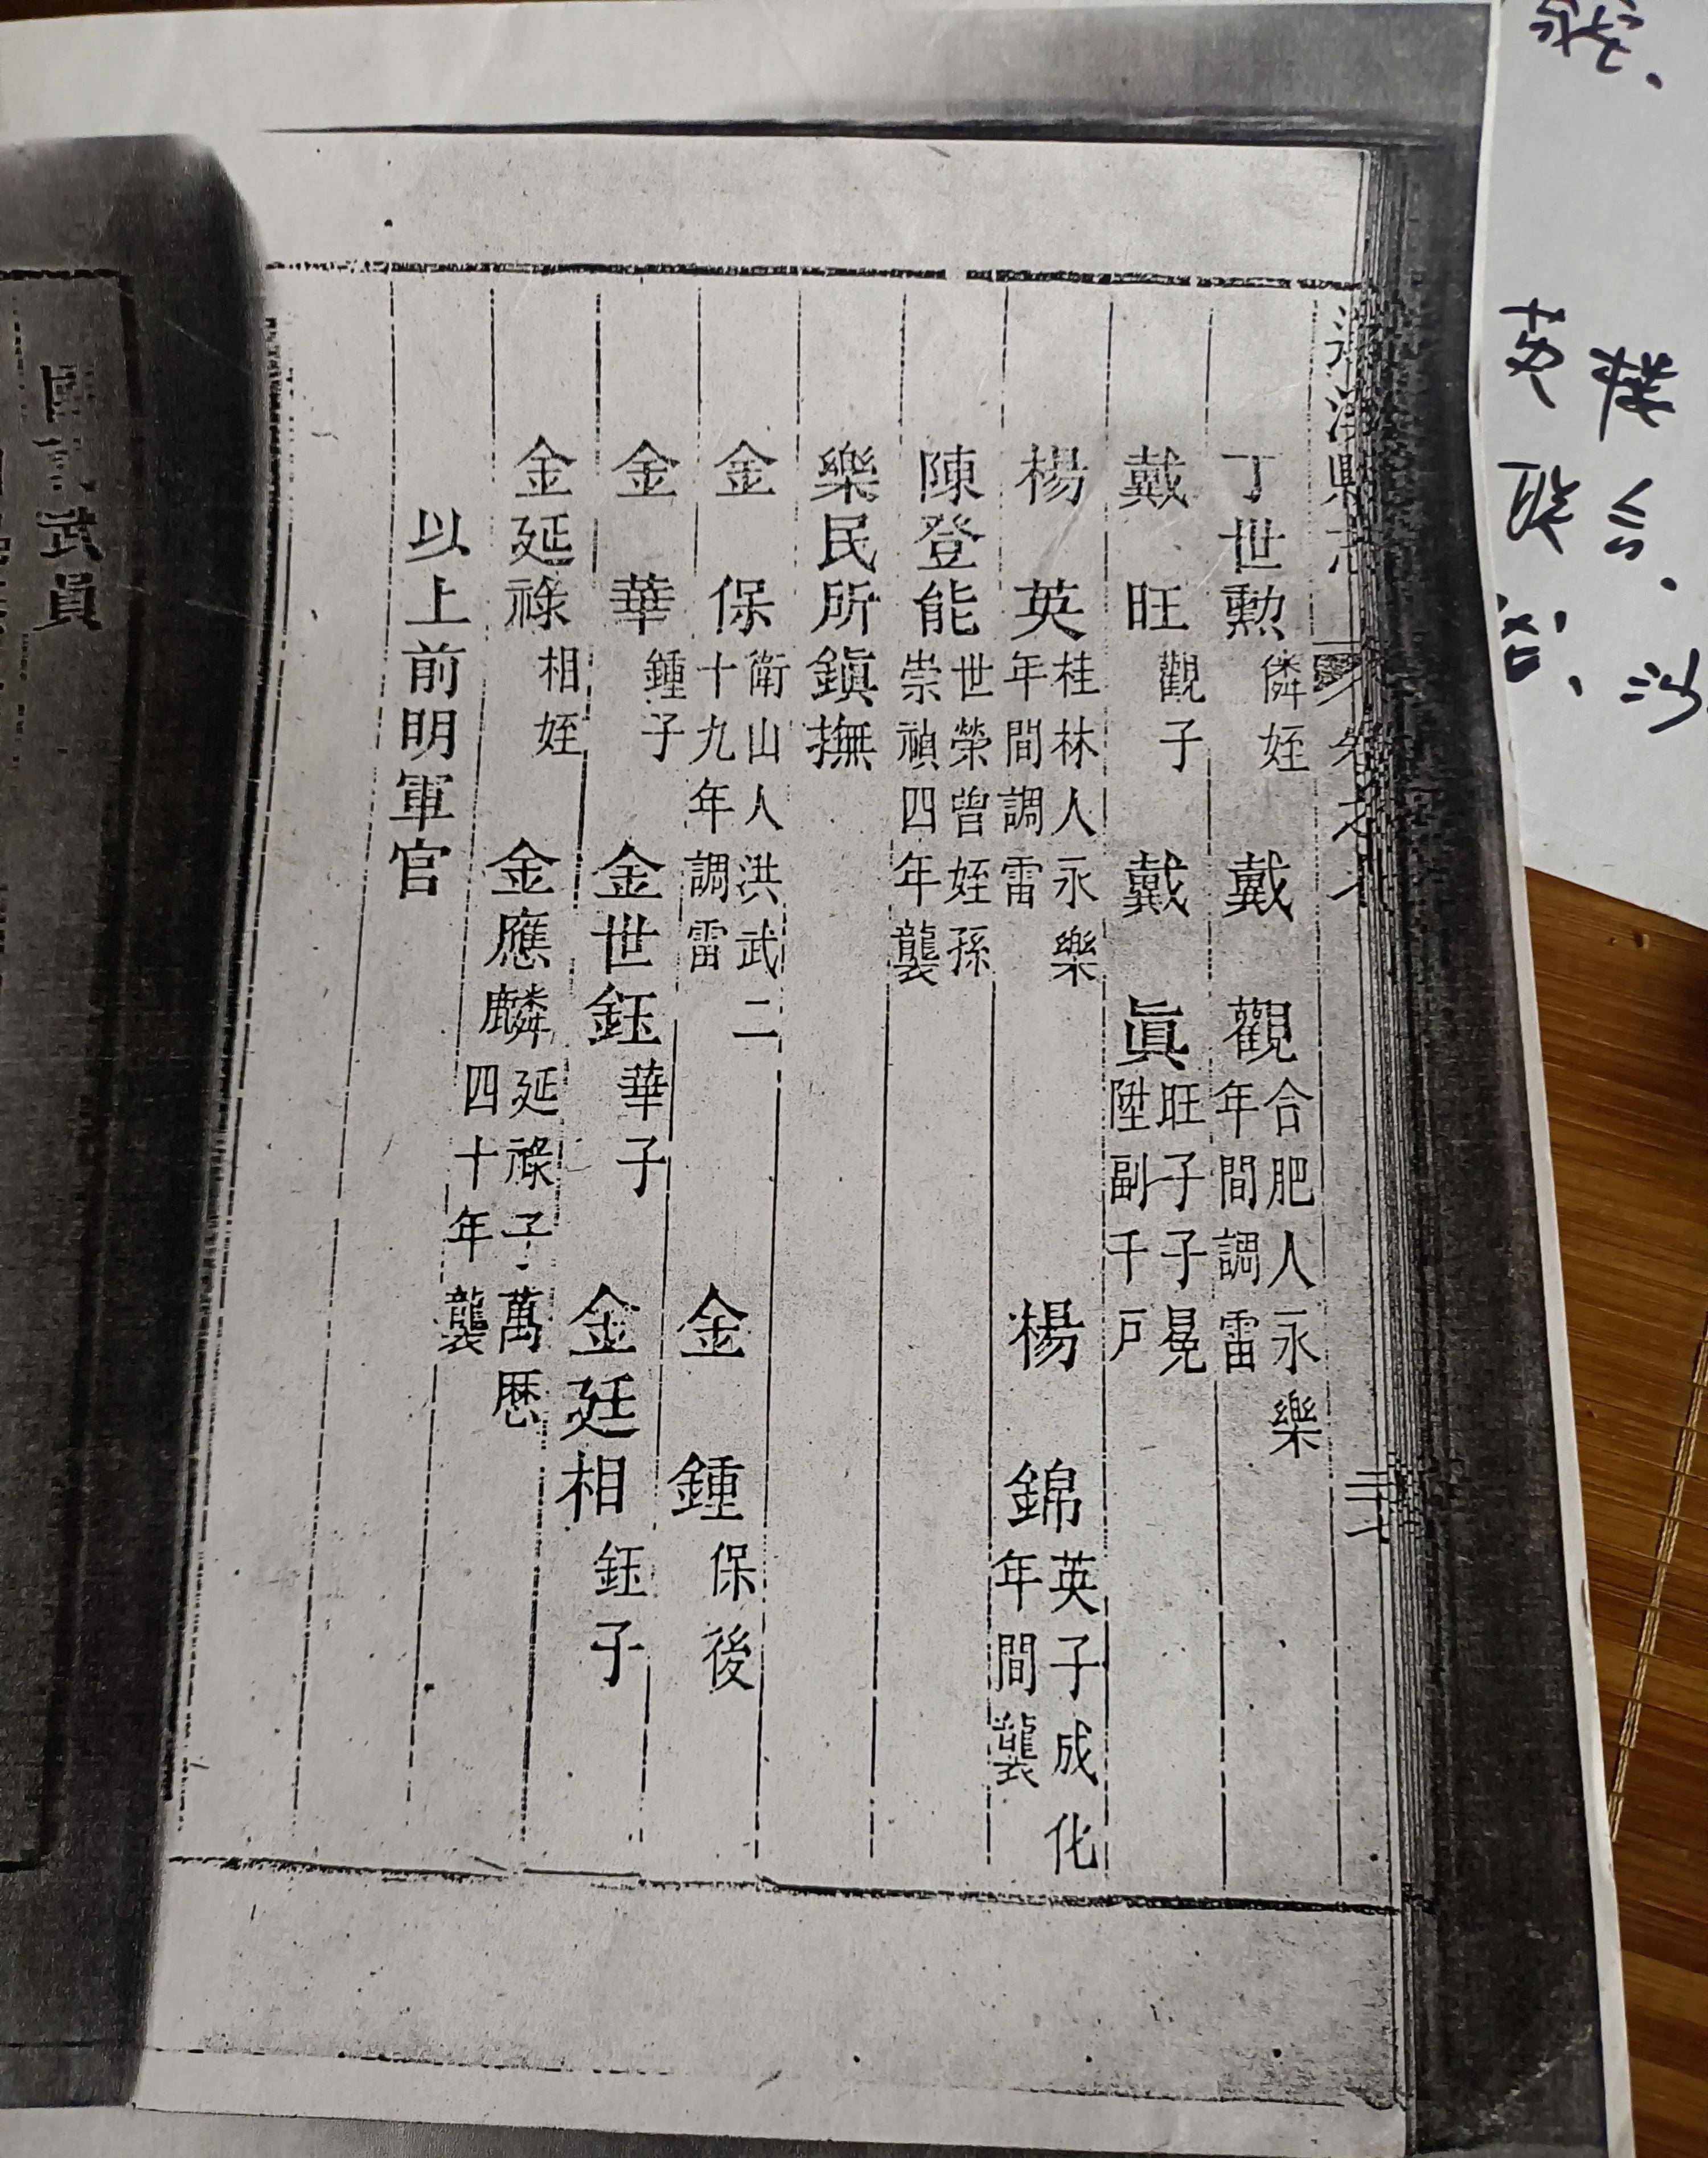 丁世勳 僯姪 戴觀 合肥人永樂年間調雷
戴旺 觀子 戴眞 旺子子晃陞副千戶
楊英 桂林人永樂年間調雷 楊錦 英子成化年間襲
陳登能 世榮曾姪孫崇禎四年襲
樂民所鎭撫
金保 衛山人洪武二十九年調雷 金鍾 保後
金華 鍾子 金世鈺 華子 金廷相 鈺子
金延祿 相姪 金應麟 延祿子萬歷四十年襲
以上前明軍官
武員
英 樸
联 合
沙